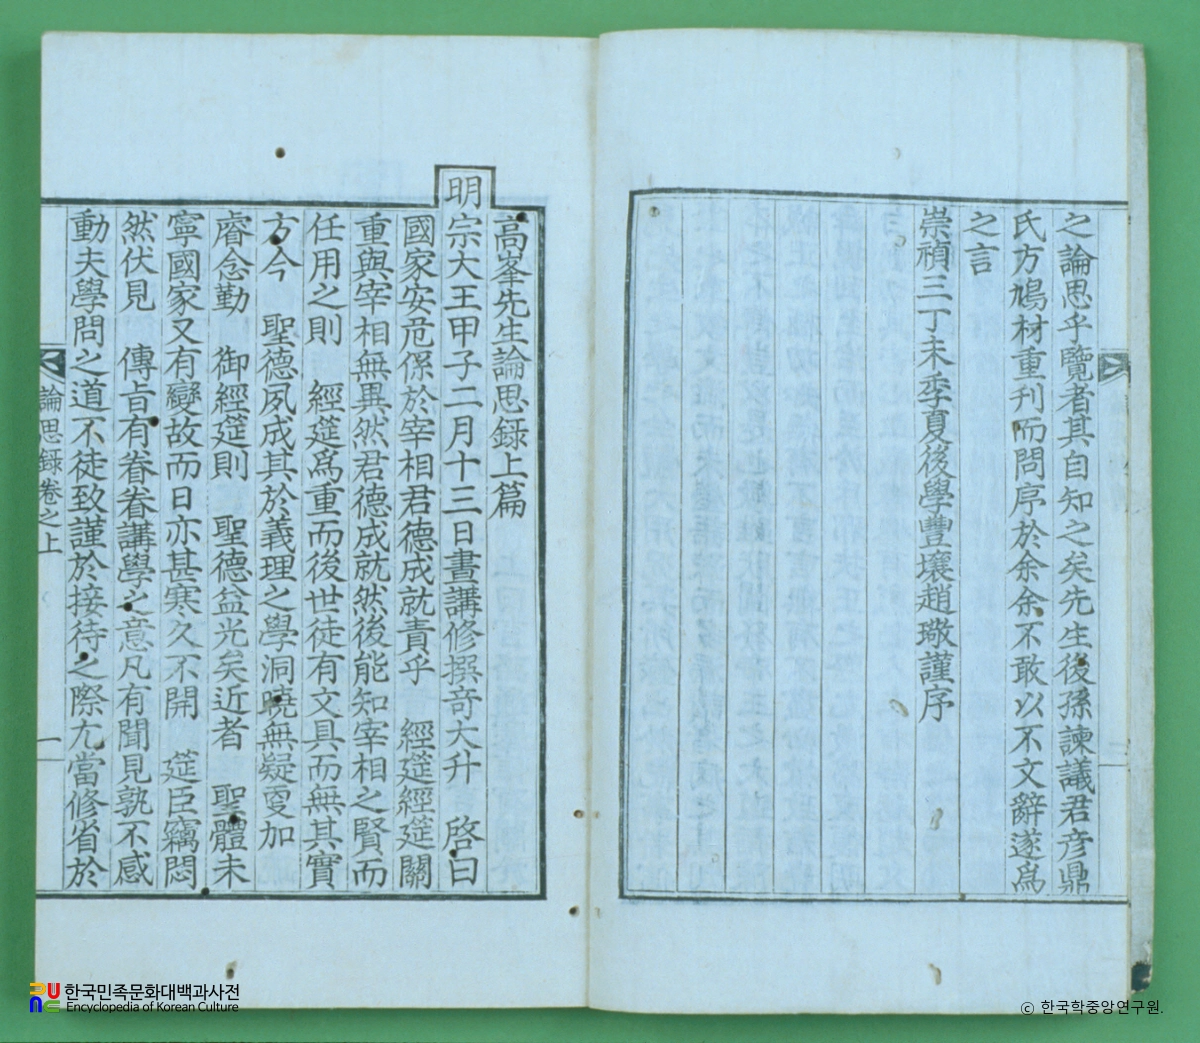 之論思乎覽者其自知之矣先生後孫諫議君彦鼎
氏方鳩材重刊而問序於余余不敢以不文辭遂爲
之言
崇禎三丁未季夏後學豐壤趙璥謹序
高峯先生論思録上篇
明宗大王甲子二月十三日晝講修撰奇大升 啓曰
國家安危係於宰相君德成就責乎 經筵經筵關
重與宰相無異然君德成就然後能知宰相之賢而
任用之則 經筵爲重而後世徒有文具而無其實
方今 聖德夙成其於義理之學洞曉無疑更加
睿念勤 御經筵則 聖德益光矣近者 聖體未
寧國家又有變故而日亦甚寒久不開 筵臣竊悶
然伏見 傳旨有眷眷講學之意凡有聞見孰不感
動夫學問之道不徒致謹於接待之際尤當修省於
論思録卷之上 一
한국민족문화대백과사전
Encyclopedia of Korean Culture
© 한국학중앙연구원.